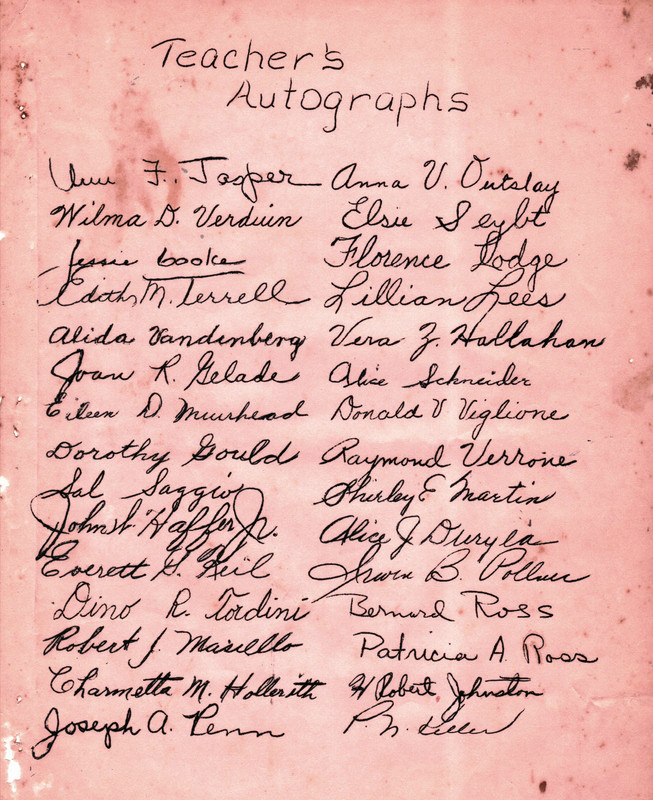 Teacher's
Autographs
F. Jasper Anna V. Outslay
Wilma D. Verduin Elsie Seybt
Jessie Cooke Florence Lodge
Edith M. Terrell Lillian Lees
Alida Vandenberg Vera Z. Hallahan
Joan R. Gelade Alice Schneider
Eileen D. Muirhead Donald V Viglione
Dorothy Gould Raymond Verrone
Sal Saggio Shirley E Martin
Haffer Jr. Alice J Duryla
Everett G. Keil Irwin B.
Dino R. Tordini Bernard Ross
Robert J. Masiello Patricia A. Ross
Charmetta M. Hollerith H Robert Johnston
Joseph A. Penn